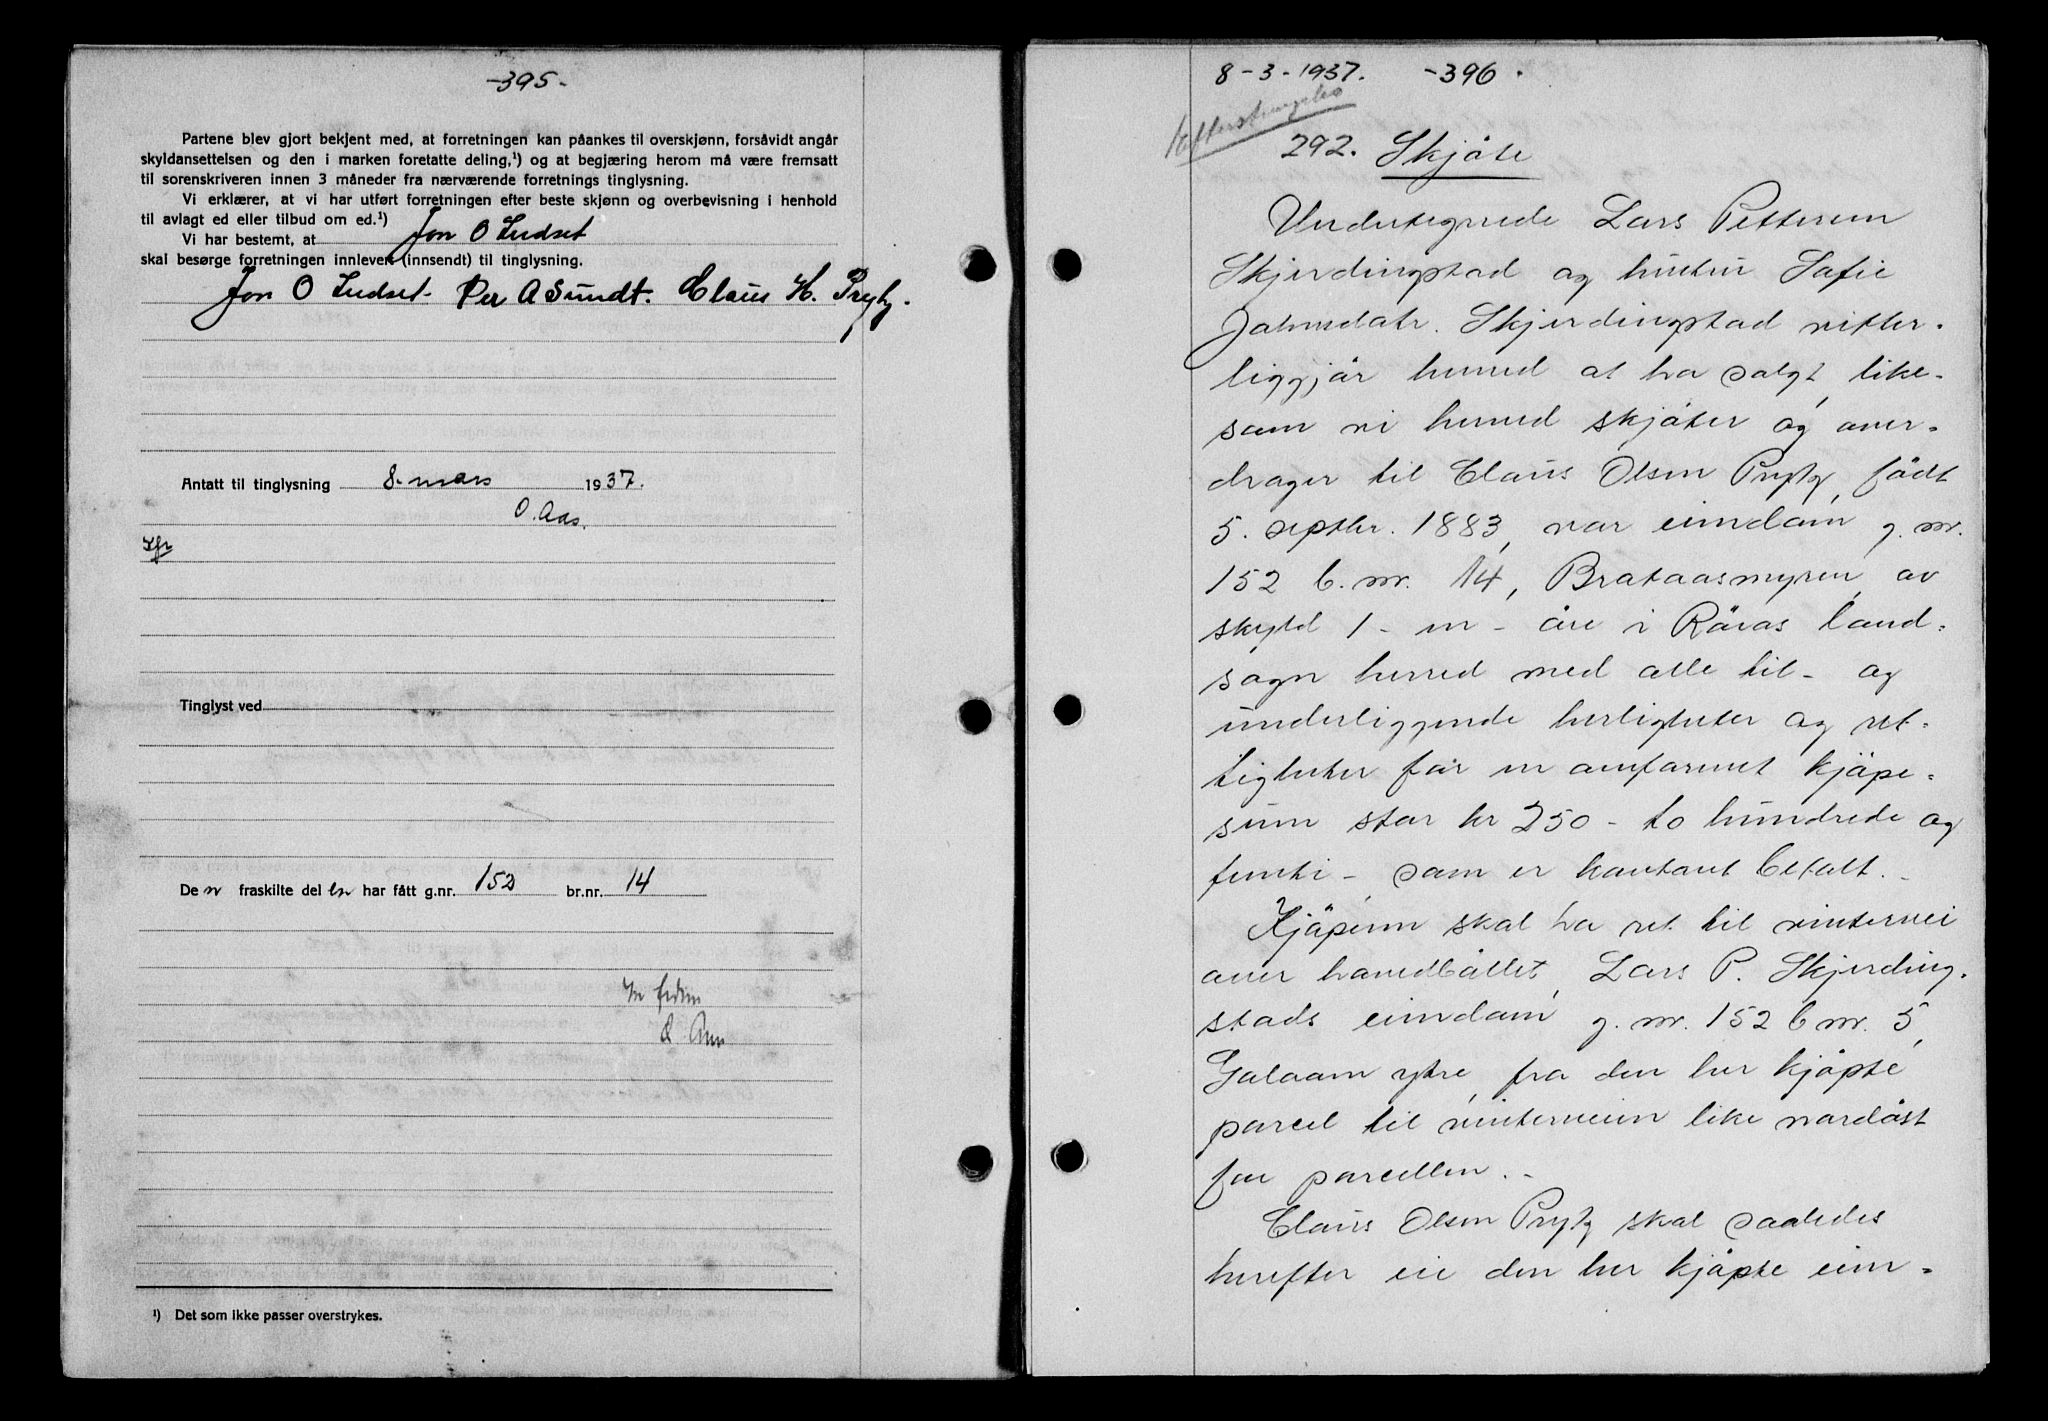 -395-
Partene blev gjort bekjent med, at forretningen kan påankes til overskjønn, forsåvidt angår
skyldansettelsen og den i marken foretatte deling,¹) og at begjæring herom må være fremsatt
til sorenskriveren innen 3 måneder fra nærværende forretnings tinglysning.
Vi erklærer, at vi har utført forretningen efter beste skjønn og overbevisning i henhold
til avlagt ed eller tilbud om ed.¹)
Vi har bestemt, at Jon O Ludset
skal besørge forretningen innlevert (innsendt) til tinglysning.
Jon O Ludset. Per A Sundt. Claus H. Prytz.
Antatt til tinglysning 8. mars 1937.
O. Aas.
Tinglyst ved
De n fraskilte del har fått g.nr. 152 br.nr. 14
¹) Det som ikke passer overstrykes.
8-3-1937. -396.
292. Skjøte
Undertegnede Lars Pettersen
Skjerdingstad og hustru Sofie
Johnsdatr. Skjerdingstad vitter-
liggjør herved at ha solgt, like-
som vi herved skjøter og over-
drager til Claus Olsen Prytz, født
5. septbr. 1883, vor eiendom g. nr.
152 b. nr. 14, Brataasmyren, av
skyld 1 - en - øre i Røros land-
sogn herred med alle til- og
underliggende herligheter og ret-
tigheter for en omforenet kjøpe-
sum stor kr 250 - to hundrede og
femti - som er kontant betalt. -
Kjøperen skal ha ret til vintervei
over hovedbølet, Lars P. Skjerding-
stads eiendom g. nr. 152 b nr. 5,
Galaaen ytre, fra den her kjøpte
parcel til vinterveien like nordøst
for parcellen. -
Claus Olsen Prytz skal saaledes
herefter eie den her kjøpte eien-